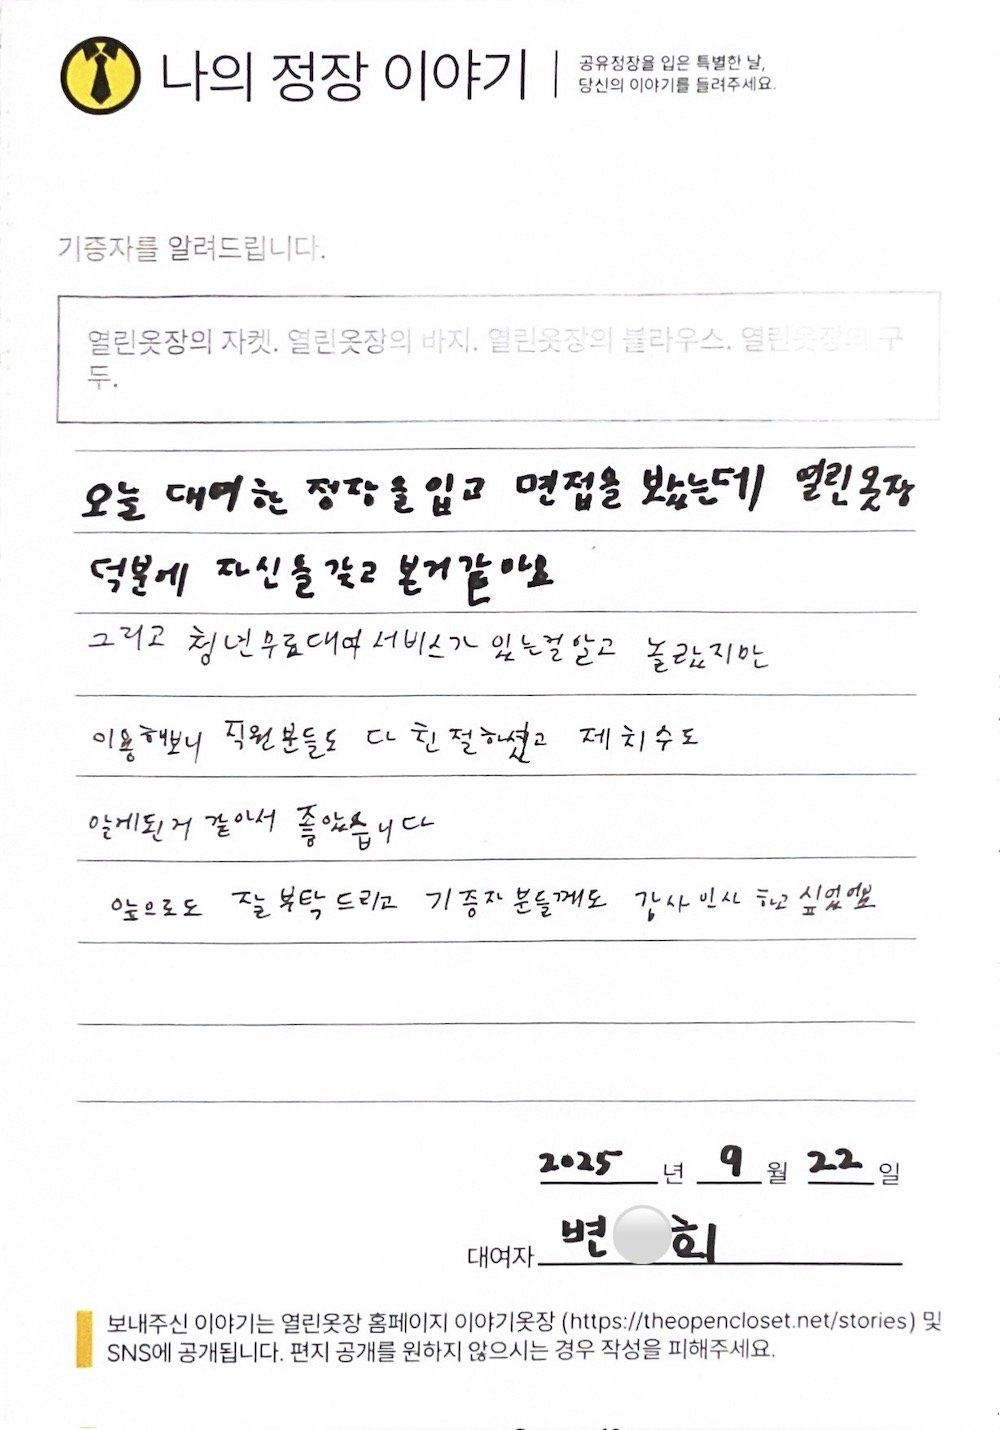 나의 정장 이야기
공유정장을 입은 특별한 날,
당신의 이야기를 들려주세요.
기증자를 알려드립니다.
열린옷장의 자켓. 열린옷장의 바지. 열린옷장의 블라우스. 열린옷장의 구
두.
오늘 대여한 정장을 입고 면접을 봤는데 열린옷장
덕분에 자신을 갖고 본거같아요
그리고 청년무료대여서비스가 있는걸알고 놀랐지만
이용해보니 직원분들도 다 친절하셨고 제 치수도
알게된거 같아서 좋았습니다
앞으로도 잘 부탁드리고 기증자분들께도 감사인사 하고 싶었어요
2025 년 9 월 22 일
대여자 변 희
보내주신 이야기는 열린옷장 홈페이지 이야기옷장 (https://theopencloset.net/stories) 및
SNS에 공개됩니다. 편지 공개를 원하지 않으시는 경우 작성을 피해주세요.